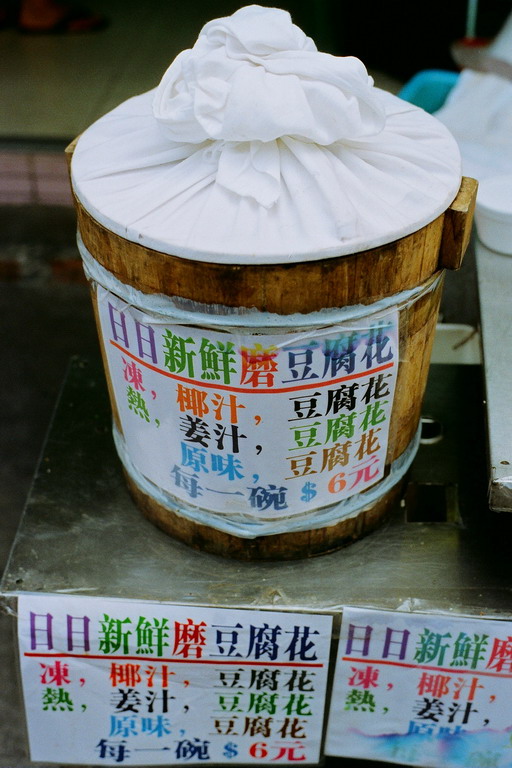 日日新鮮磨豆腐花
凍，椰汁，豆腐花
熱，姜汁，豆腐花
原味，豆腐花
每一碗＄6元
日日新鮮磨豆腐花
凍，椰汁，豆腐花
熱，姜汁，豆腐花
原味，豆腐花
每一碗＄6元
日日新鮮磨
凍，椰汁，
熱，姜汁，
原味，